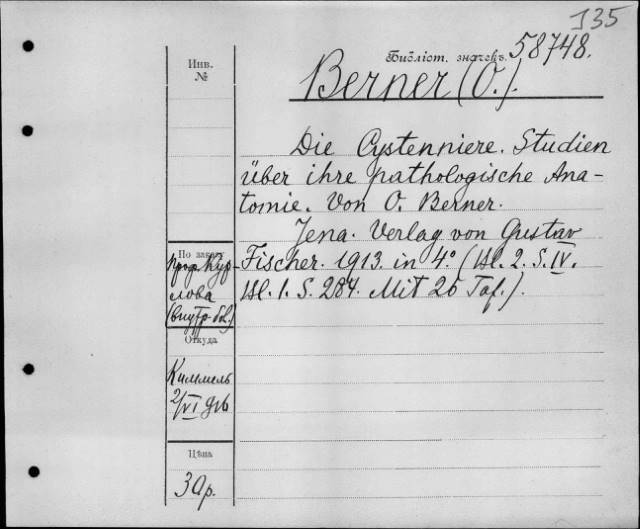 135
Инв.
№
Библіот. значекъ. 58748.
Berner (O.).
Die Cystenniere. Studien
über ihre pathologische Ana-
tomie. Von O. Berner.
Jena. Verlag von Gustav
Fischer. 1913. in 4° (Bl. 2. S. IV.
Bl. 1. S. 284. Mit 26 Taf.).
По заказу
проф. Кур-
лова
(внутр. бол.)
Откуда
Киммель
2/VI
Цѣна
30р.